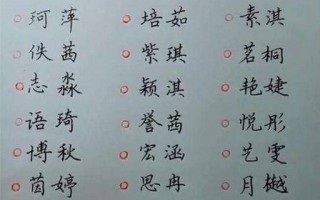 珂萍 培茹 素淇
佚茜 紫琪 茗桐
志淼 颖淇 艳婕
语琦 誉茜 悦彤
博秋 宏涵 艺雯
茵婷 思冉 月樾